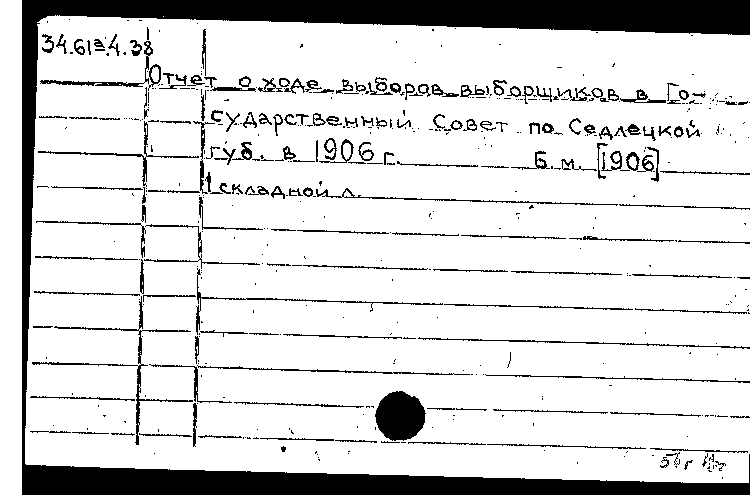 34.61
Отчет о ходе выборов выборщиков в Го-
сударственный Совет по Седлецкой
губ. в 1906 г. Б.м. [1906]
1 складной л.